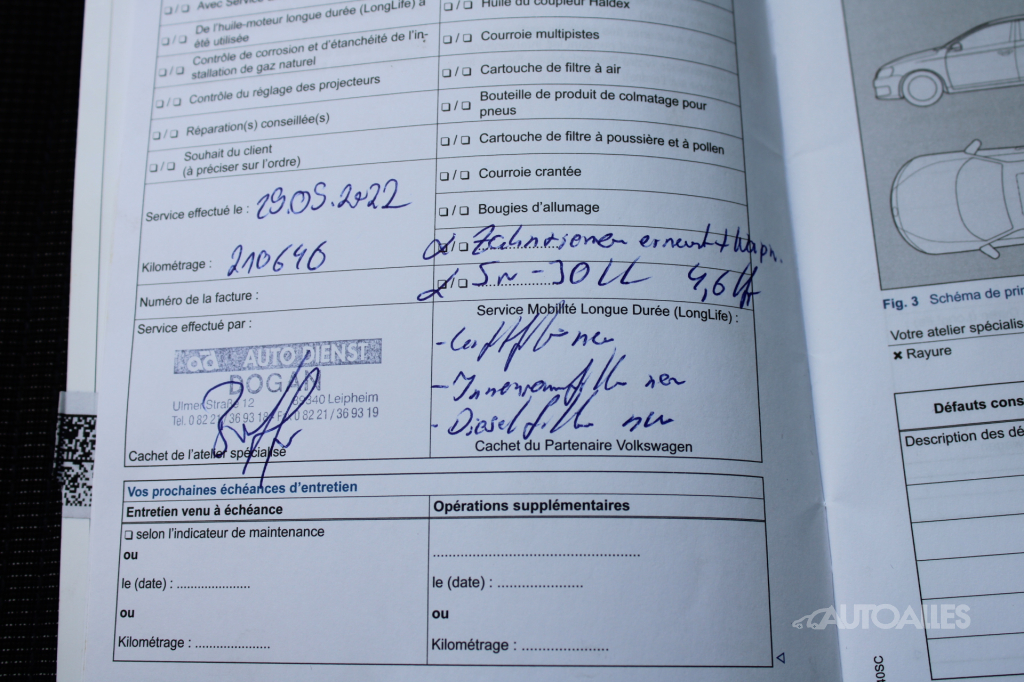 ❏ / ❏ Avec Service
❏ / ❏ De l'huile-moteur longue durée (LongLife) a
été utilisée
❏ / ❏ Contrôle de corrosion et d'étanchéité de l'in-
stallation de gaz naturel
❏ / ❏ Contrôle du réglage des projecteurs
❏ / ❏ Réparation(s) conseillée(s)
❏ / ❏ Souhait du client
(à préciser sur l'ordre)
Service effectué le : 29.09.2022
Kilométrage : 210646
Numéro de la facture :
Service effectué par :
ad AUTO DIENST
DOGAN
Ulmer Straße 12 89340 Leipheim
Tel. 0 82 21 / 36 93 18 Fax 0 82 21 / 36 93 19
Cachet de l'atelier spécialisé
❏ / ❏ Huile du coupleur Haldex
❏ / ❏ Courroie multipistes
❏ / ❏ Cartouche de filtre à air
❏ / ❏ Bouteille de produit de colmatage pour
pneus
❏ / ❏ Cartouche de filtre à poussière et à pollen
❏ / ❏ Courroie crantée
❏ / ❏ Bougies d'allumage
❏ / ❏ Zahnriemen erneut + Wapu.
❏ / ❏ 5W-30 LL 4,6 L
Service Mobilité Longue Durée (LongLife) :
- Luftfilter neu
- Innenraumfilter neu
- Dieselfilter neu
Cachet du Partenaire Volkswagen
Vos prochaines échéances d'entretien
Entretien venu à échéance
❏ selon l'indicateur de maintenance
ou
le (date) : ......................
ou
Kilométrage : ......................
Opérations supplémentaires
le (date) : .......................
ou
Kilométrage : .......................
Fig. 3 Schéma de prin
Votre atelier spécialis
✖ Rayure
Défauts cons
Description des dé
40SC
AUTOALLES